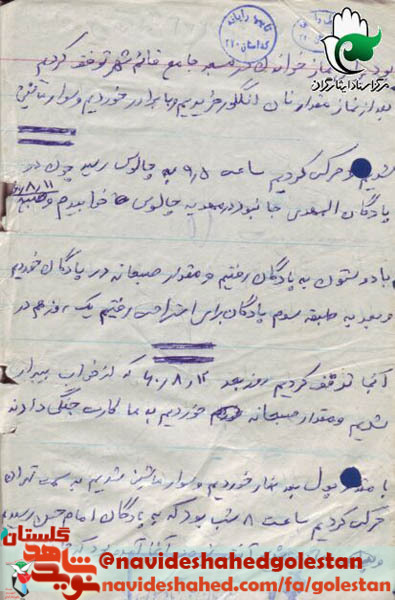 بود برای نماز خواندن در مسجد جامع قائم شهر توقف کردیم
بعد از نماز مقدار نان انگور خریدیم و با برادر خوردیم و سوار ماشین
شدیم و حرکت کردیم ساعت ۹/۵ به چالوس رسید چون در
پادگان المهدی جا نبود در مهدیه چالوس خوابیدم و صبح ۶۰/۸/۱۱
با دوستون به پادگان رفتیم و مقدار صبحانه در پادگان خوردیم
و بعد به طبقه سوم پادگان برای استراحت رفتیم یک روز هم در
آنجا توقف کردیم روز بعد ۶۰/۸/۱۲ که از خواب بیدار
شدیم و مقدار صبحانه خوردیم به ما کارت جنگی دادند
با مقدار پول بعد نهار خوردیم و سوار ماشین شدیم به سمت تهران
حرکت کردیم ساعت ۸ شب بود که به پادگان امام حسن رسیدیم
مرکز اسناد ایثارگران
نوید شاهد گلستان
@navideshahedgolestan
navideshahed.com/fa/golestan